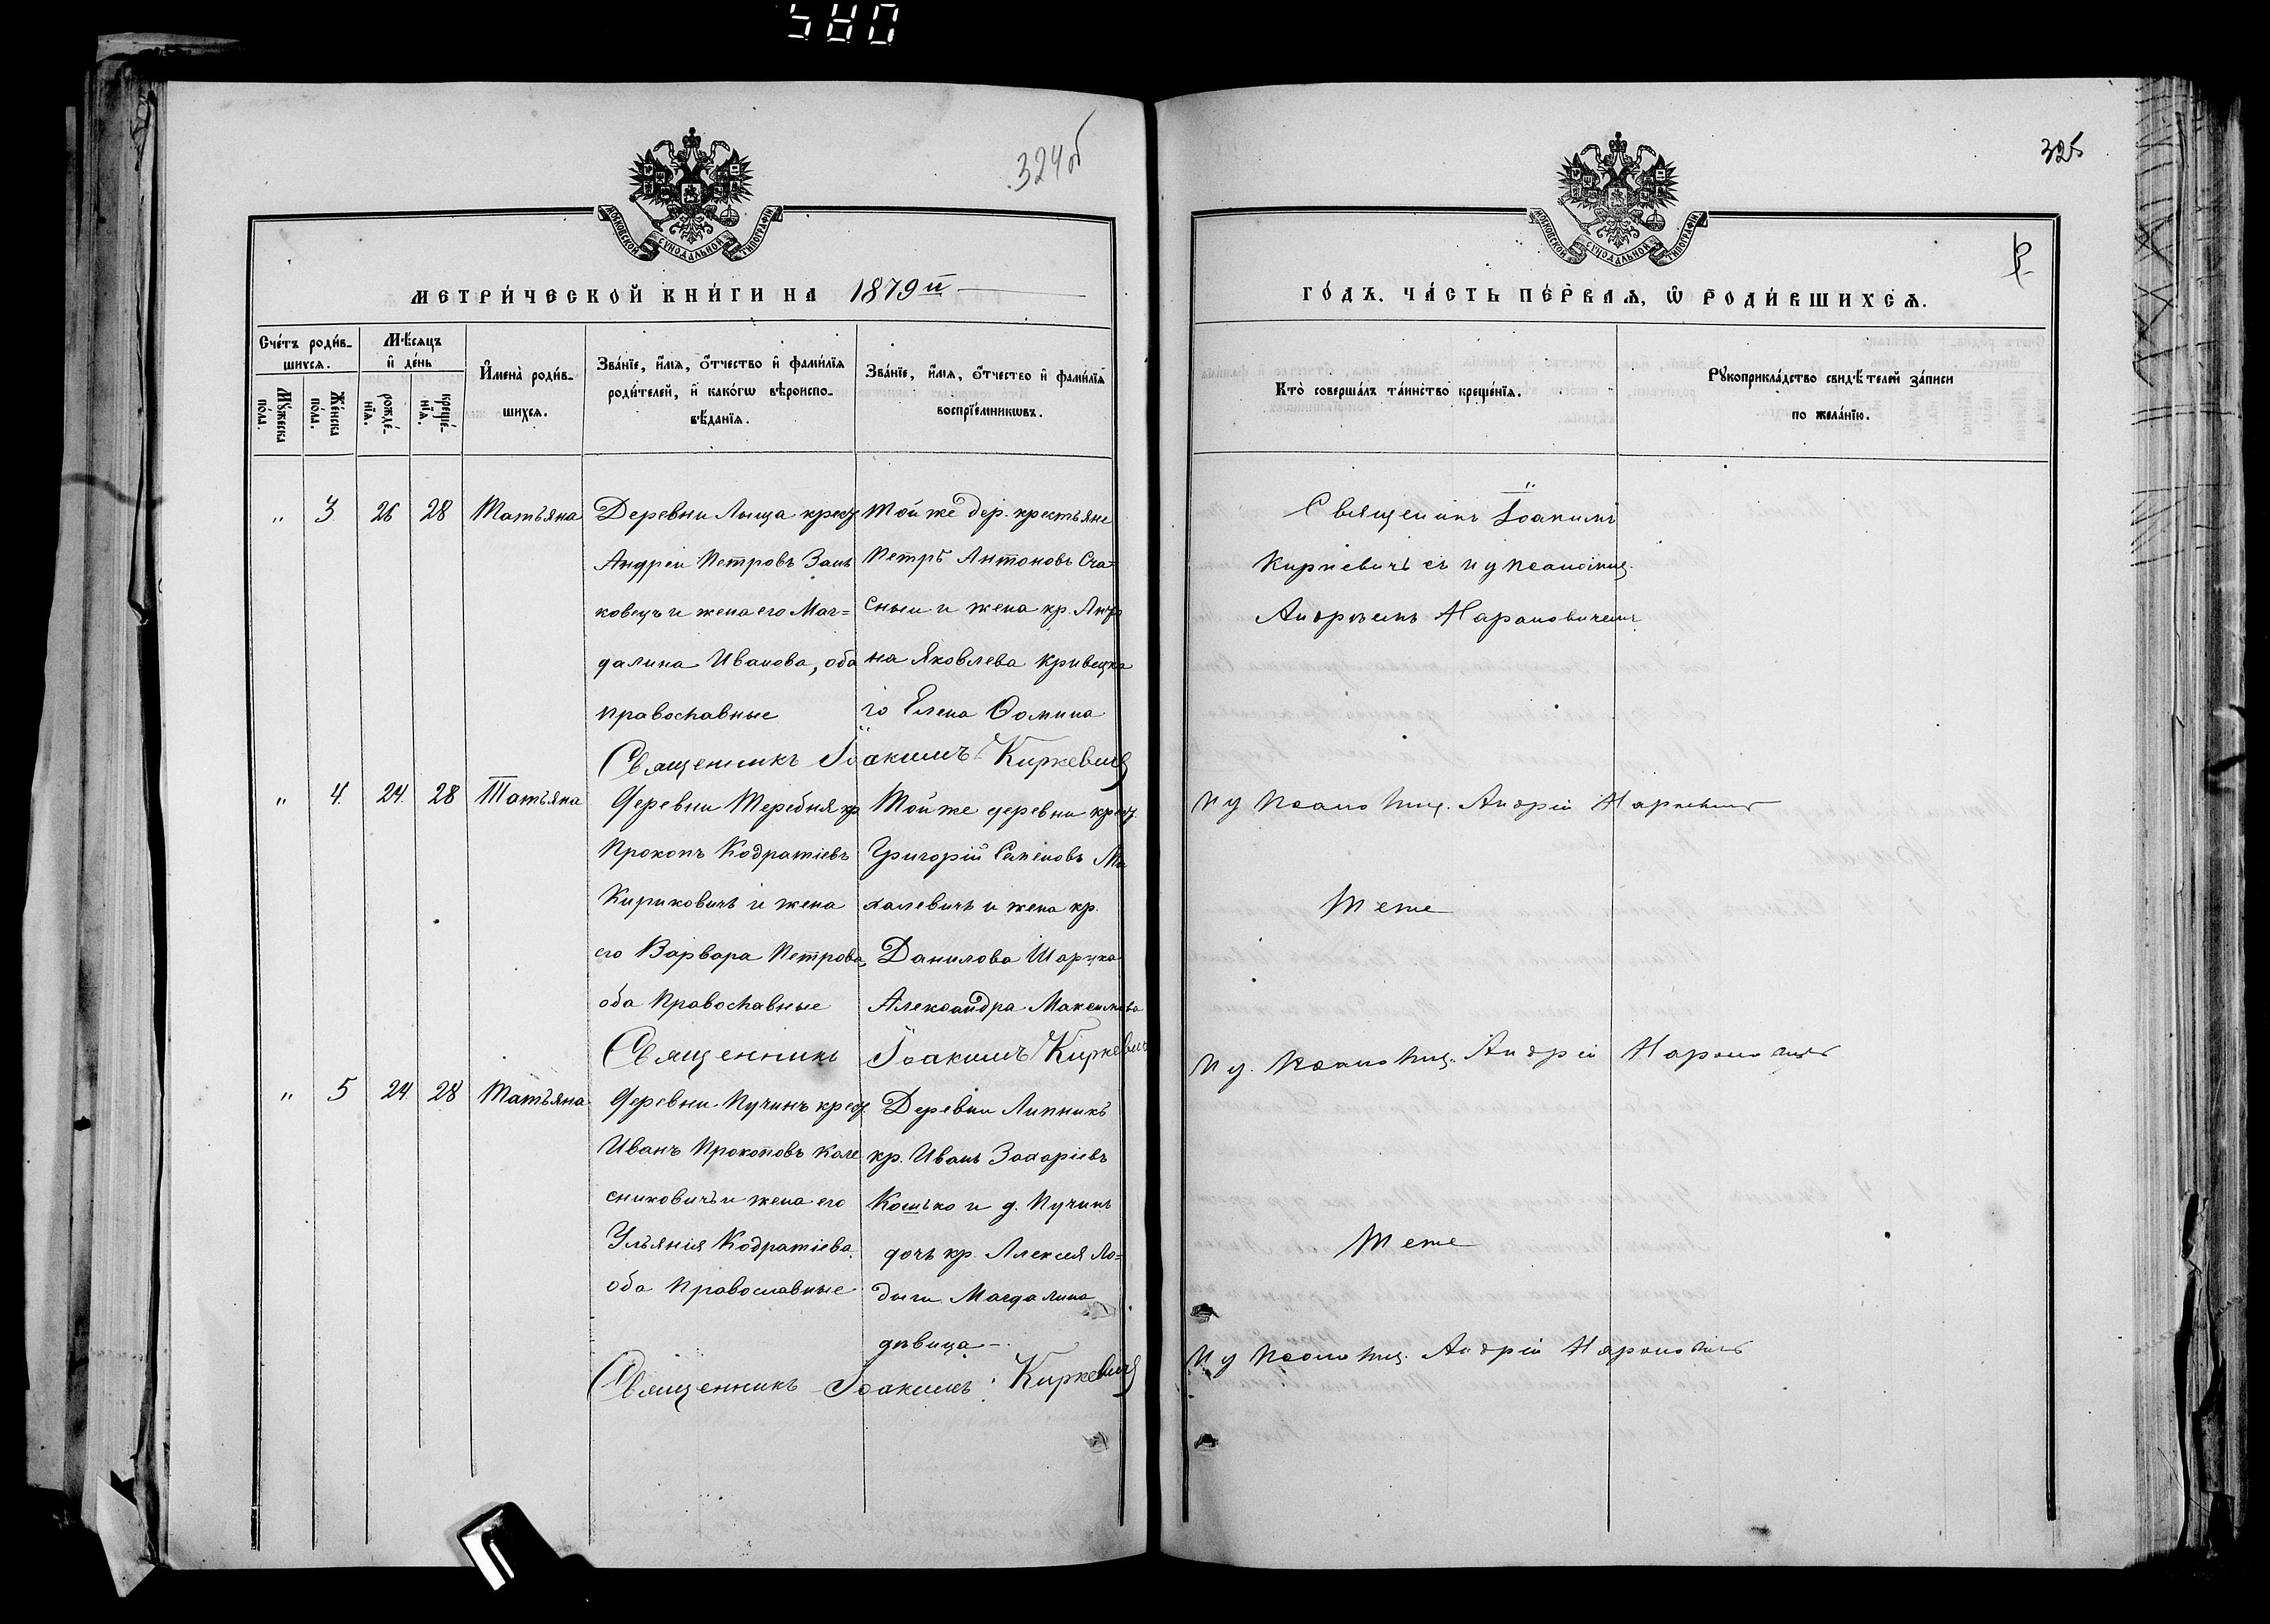 580
324об
МОСКОВСКОЙ СѴНОДАЛЬНОЙ ТИПОГРАФІИ
МЕТРИ́ЧЕСКОЙ КНИ́ГИ НА 1879й
Сче́тъ роди́в-
шихсѧ.
Мꙋ́жеска
по́ла.
Же́нска
по́ла.
Мѣ́сѧцъ
и҆ де́нь
рожде́-
нїѧ.
креще́-
нїѧ.
И҆мена̀ роди́в-
шихсѧ.
Зва́нїе, и҆́мѧ, ѻ҆́тчество и҆ фами́лїѧ
роди́телей, и҆ како́гѡ вѣроиспо-
вѣ́данїѧ.
Зва́нїе, и҆́мѧ, ѻ҆́тчество и҆ фами́лїѧ
воспрїе́мникѡвъ.
„ 3. 26 28 Татьяна
Деревни Лыща крест.
Андрей Петровъ Зань
ковецъ и жена его Маг=
далина Иванова, оба
православные
Той же дер. крестьяне
Петръ Антоновъ Ста=
сный и жена кр. Анто
на Яковлева Кривецка
го Елена Ѳомина
Священникъ Іоакимъ Киркевичъ
„ 4. 24. 28 Татьяна
Деревни Теребня кр.
Прокопъ Кодратіевъ
Кириковичъ и жена
его Варвара Петрова,
оба Православные
Той же деревни крест.
Григорій Семеновъ Ми
халевичъ и жена кр.
Данилова
Александра Максимова
Священникъ Іоакимъ Киркевичъ
„ 5 24. 28 Татьяна
Деревни Пучинъ крест.
Иванъ Прокоповъ Коле
сниковичъ и жена его
Ульянія Кодратіева.
оба Православные
Деревни Липникъ
кр. Иванъ Захаріевъ
Кошько и д. Пучинъ
дочь кр. Алексея Ло=
дыги Магдалина
дѣвица –.
Священникъ Іоакимъ Киркевичъ
325
МОСКОВСКОЙ СѴНОДАЛЬНОЙ ТИПОГРАФІИ
ГО́ДЪ. ЧА́СТЬ ПЕ́РВАѦ, Ѡ҆ РОДИ́ВШИХСѦ.
Кто̀ соверша́лъ та́инство креще́нїѧ.
Рꙋкоприкла́дство свидѣ́телей за́писи
по жела́нїю.
Священикъ Іоакимъ
Киркевичъ съ и д псаломщ.
Андреемъ Нароновичемъ
И д Псаломщ. Андрей
Теже
И д. Псаломщ. Андрей Нароновичъ
Теже
И д Псаломщ. Андрей Нароновичъ